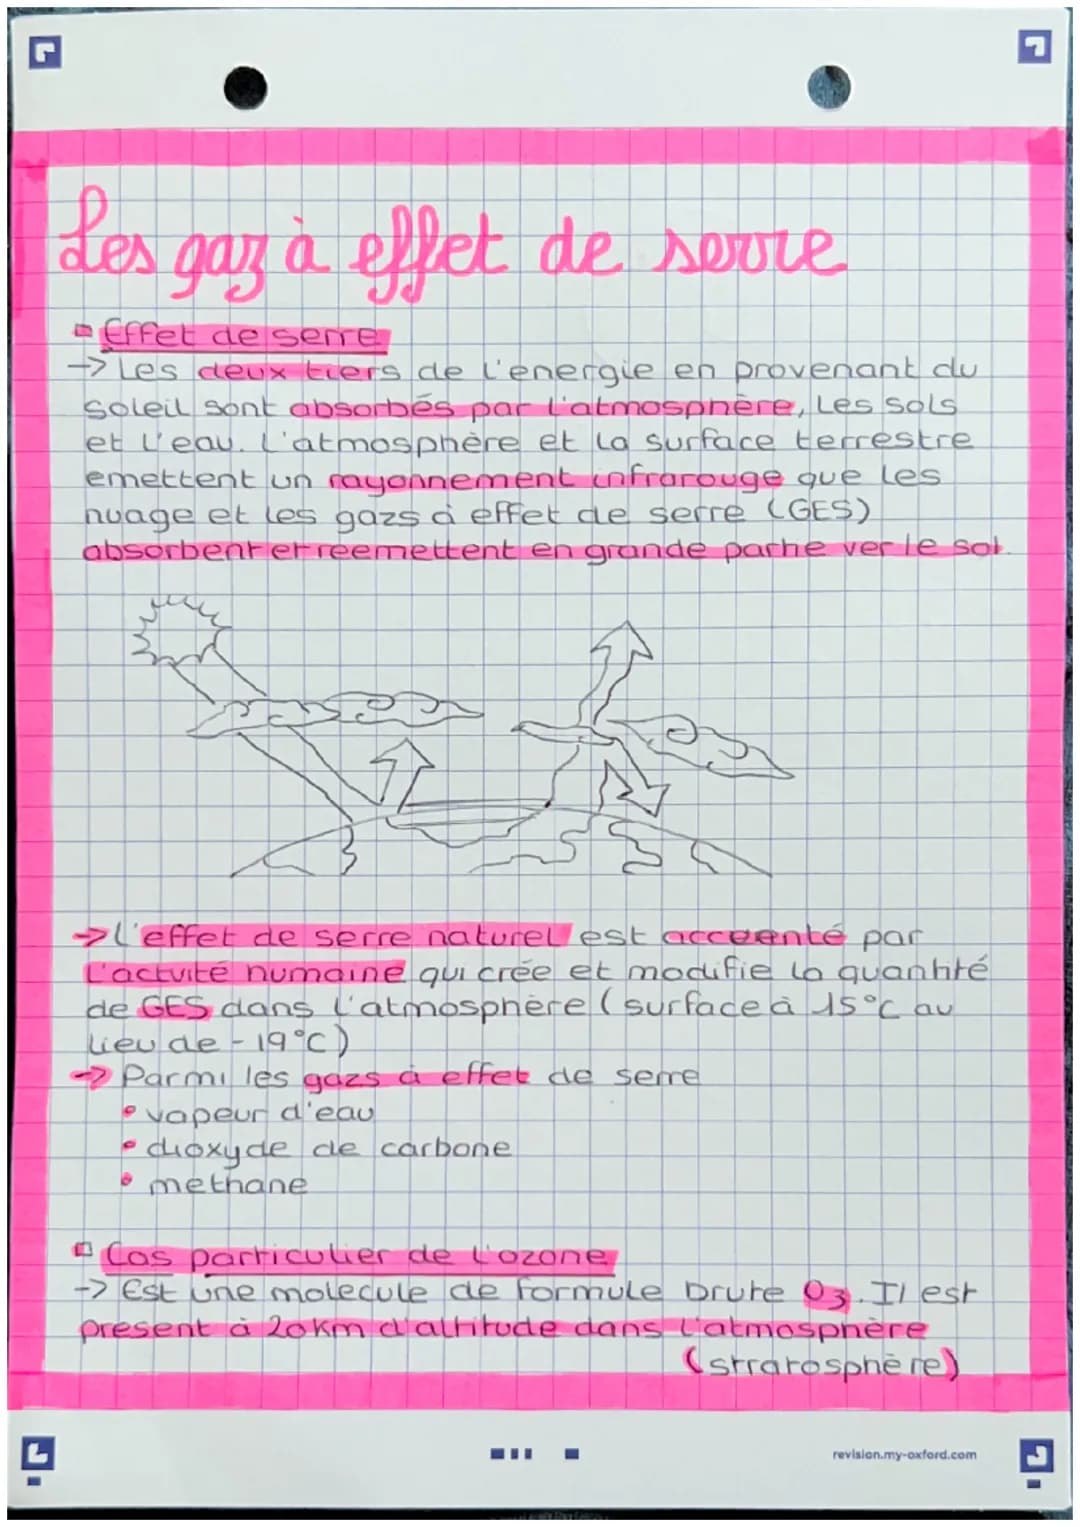 Les gaz à effet de serre
Effet de serre
-> Les deux tiers de l'energie en provenant du
soleil sont absorbés par l'atmosphère, les sols
et l'eau. L'atmosphère et la surface terrestre
emettent un rayonnement infrarouge que les
nuage et les gazs à effet de serre (GES)
absorbent et reemettent en grande partie ver le sol.
-> L'effet de serre naturel est acceenté par
L'actvité humaine qui crée et modifie la quantité
de GES dans l'atmosphère (surface à 15°C au
lieu de -19°C)
-> Parmi les gazs à effet de serre
• vapeur d'eau
• dioxyde de carbone
• methane
Cas particulier de l'ozone
-> Est une molecule de formule brute O3. Il est
present à 20km d'altitude dans l'atmosphère
(stratosphère)
revision.my-oxford.com